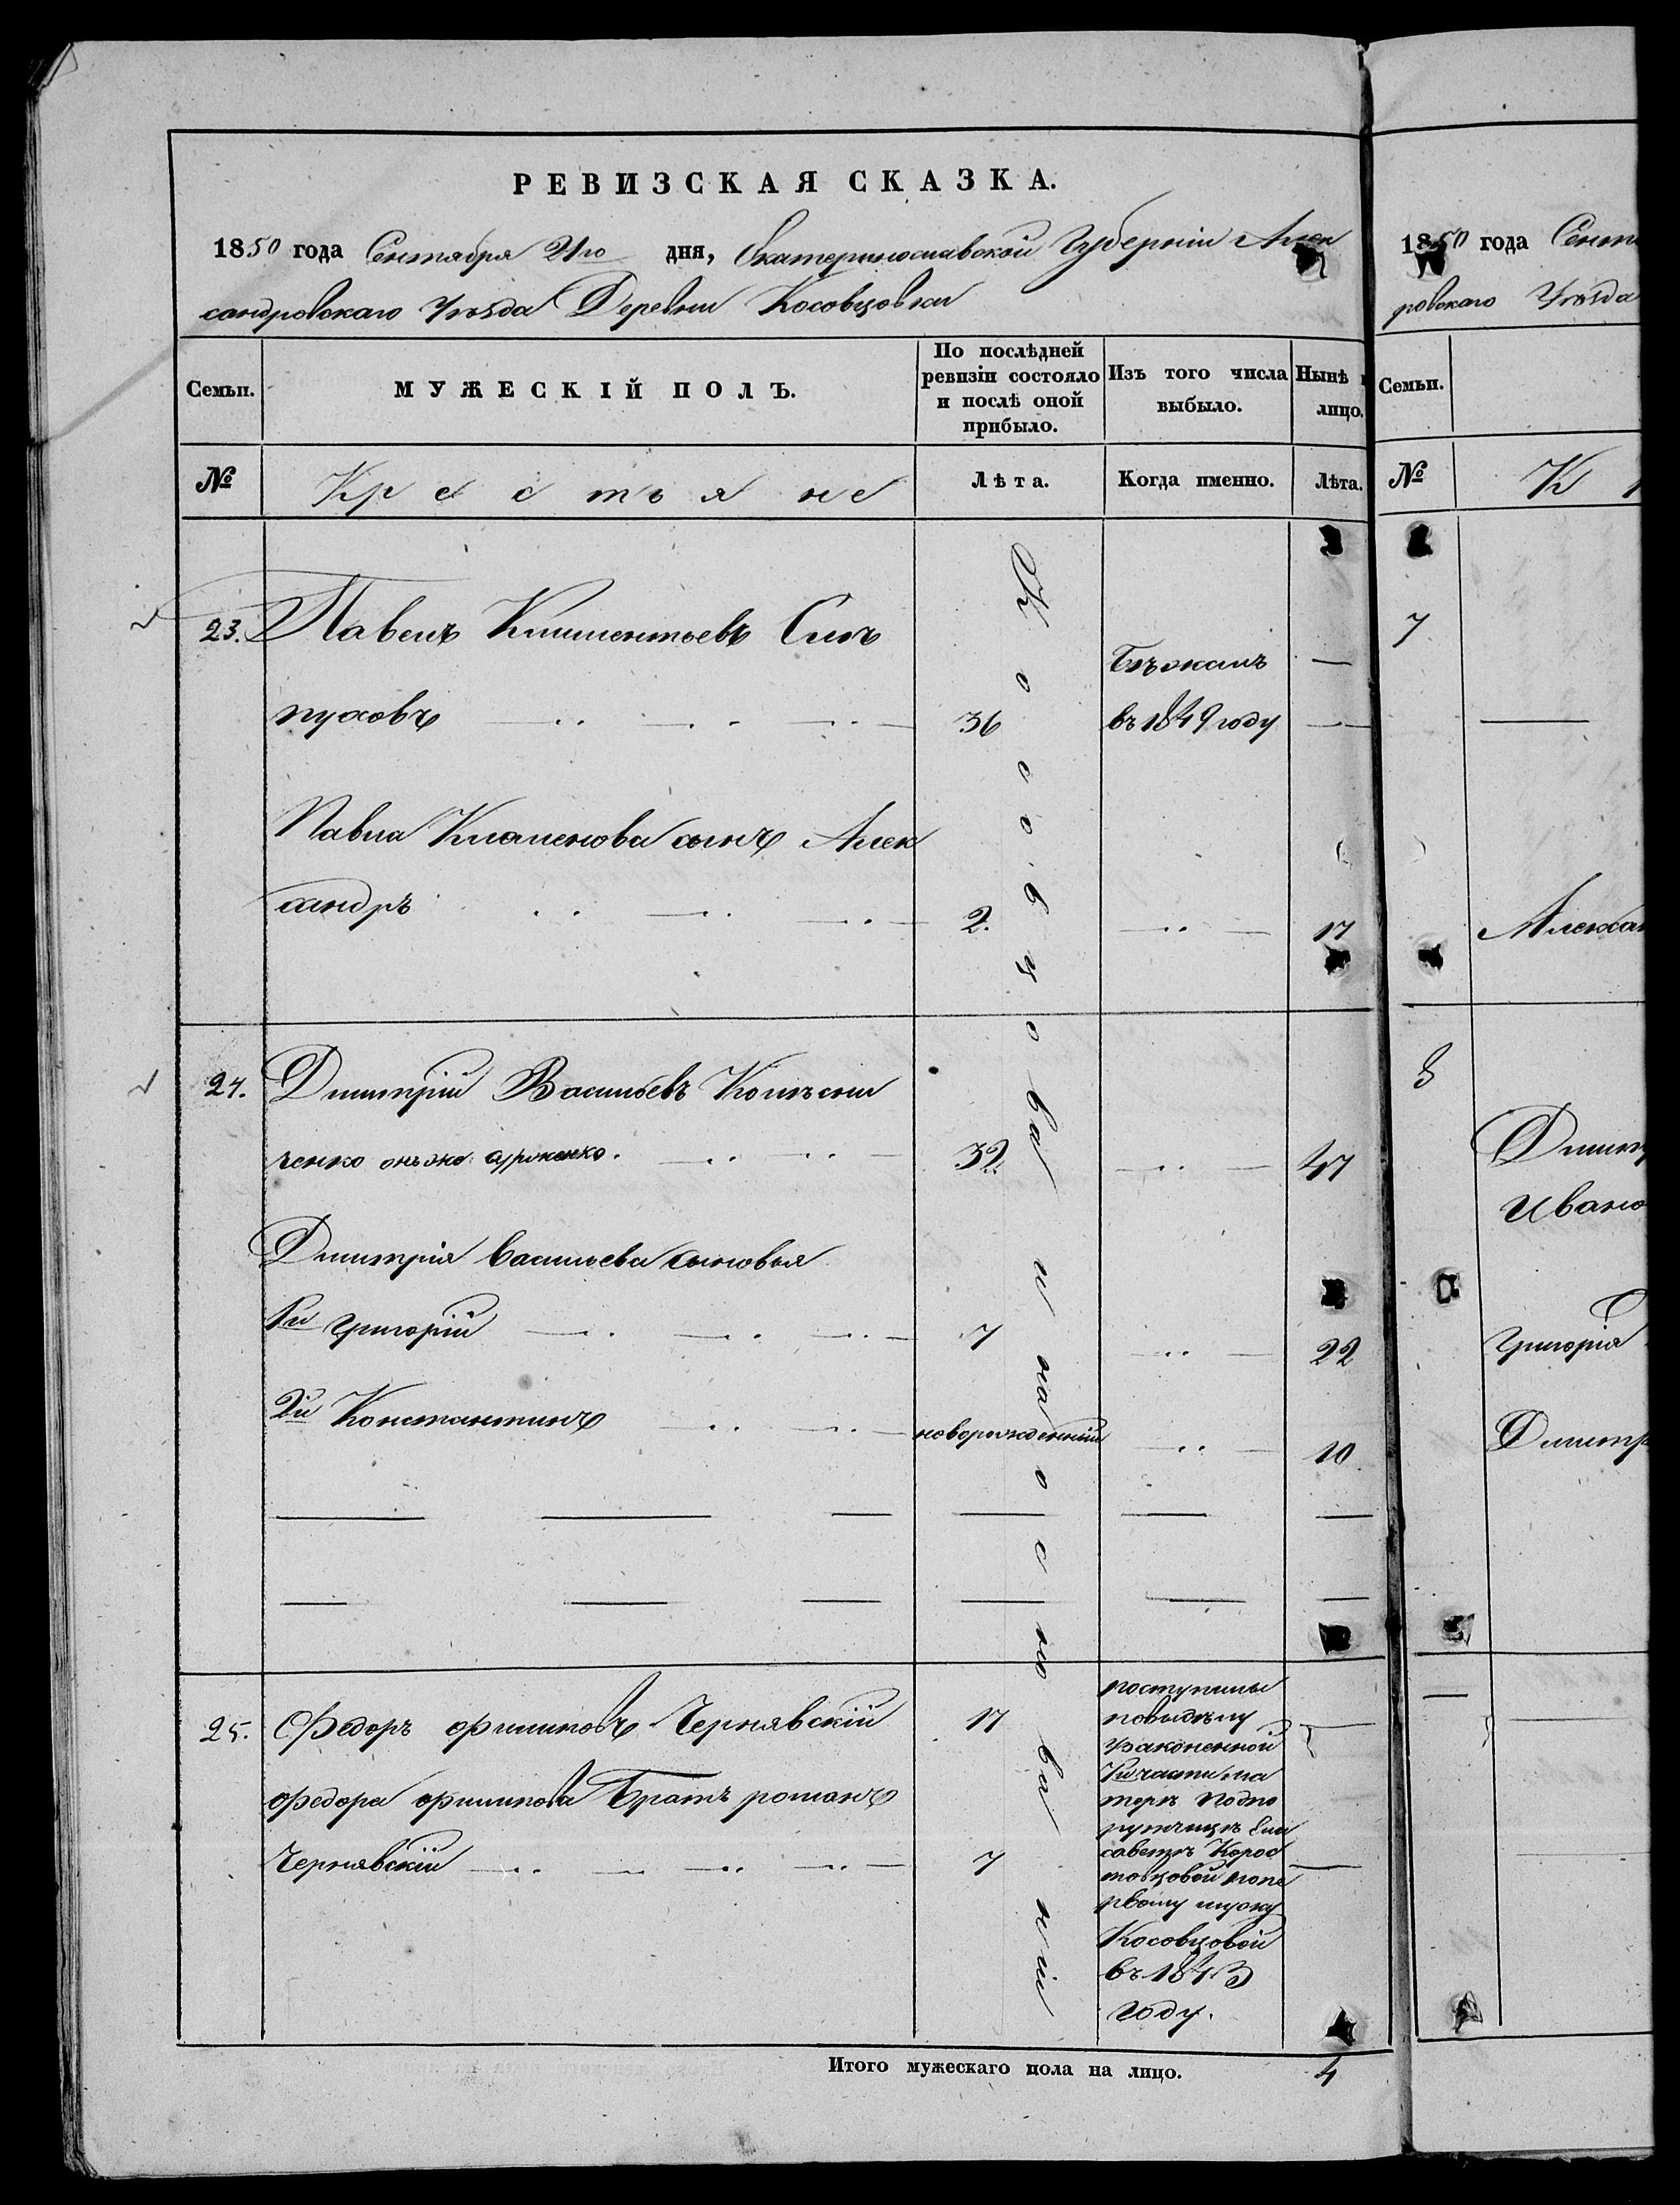 РЕВИЗСКАЯ СКАЗКА.
1850 года Сентября 21го дня, Екатеринославской Губерніи Алек
сандровскаго Уѣзда Деревни Косовцовки
Семьи.
МУЖЕСКІЙ ПОЛЪ.
По послѣдней ревизіи состояло и послѣ оной прибыло.
Изъ того числа выбыло.
Нынѣ
лицо.
№
Крестьяне
Лѣта.
Когда именно.
Лѣта.
23. Павелъ Климентьевъ Сын
пуховъ 36 Бѣжалъ въ 1849 году
Павла Клеменова сынъ Алек
сандръ 2. 17
24. Дмитрій Васильевъ
ченко онъ же 32 47
Дмитрія Васильева сыновья
1й Григорій 7 22
2й Константинъ новорожденный 10
25. Федоръ Филиповъ Чернявскій 17
Федора Филипова Братъ романъ
Чернявскій 7
поступили
по выдѣлу
узаконенной
части ма
терѣ Подпо
ручицѣ Ели
саветѣ Корос
товцовой попе
рвому мужу
Косовцовой
въ 1843
году.
Косовцова и на основаніи
Итого мужескаго пола на лицо. 4
1850 года Сент
ровскаго Уѣзда
Семьи.
№ К
7
Алекса
8
Дмит
Ивано
Григорія
Дмитр